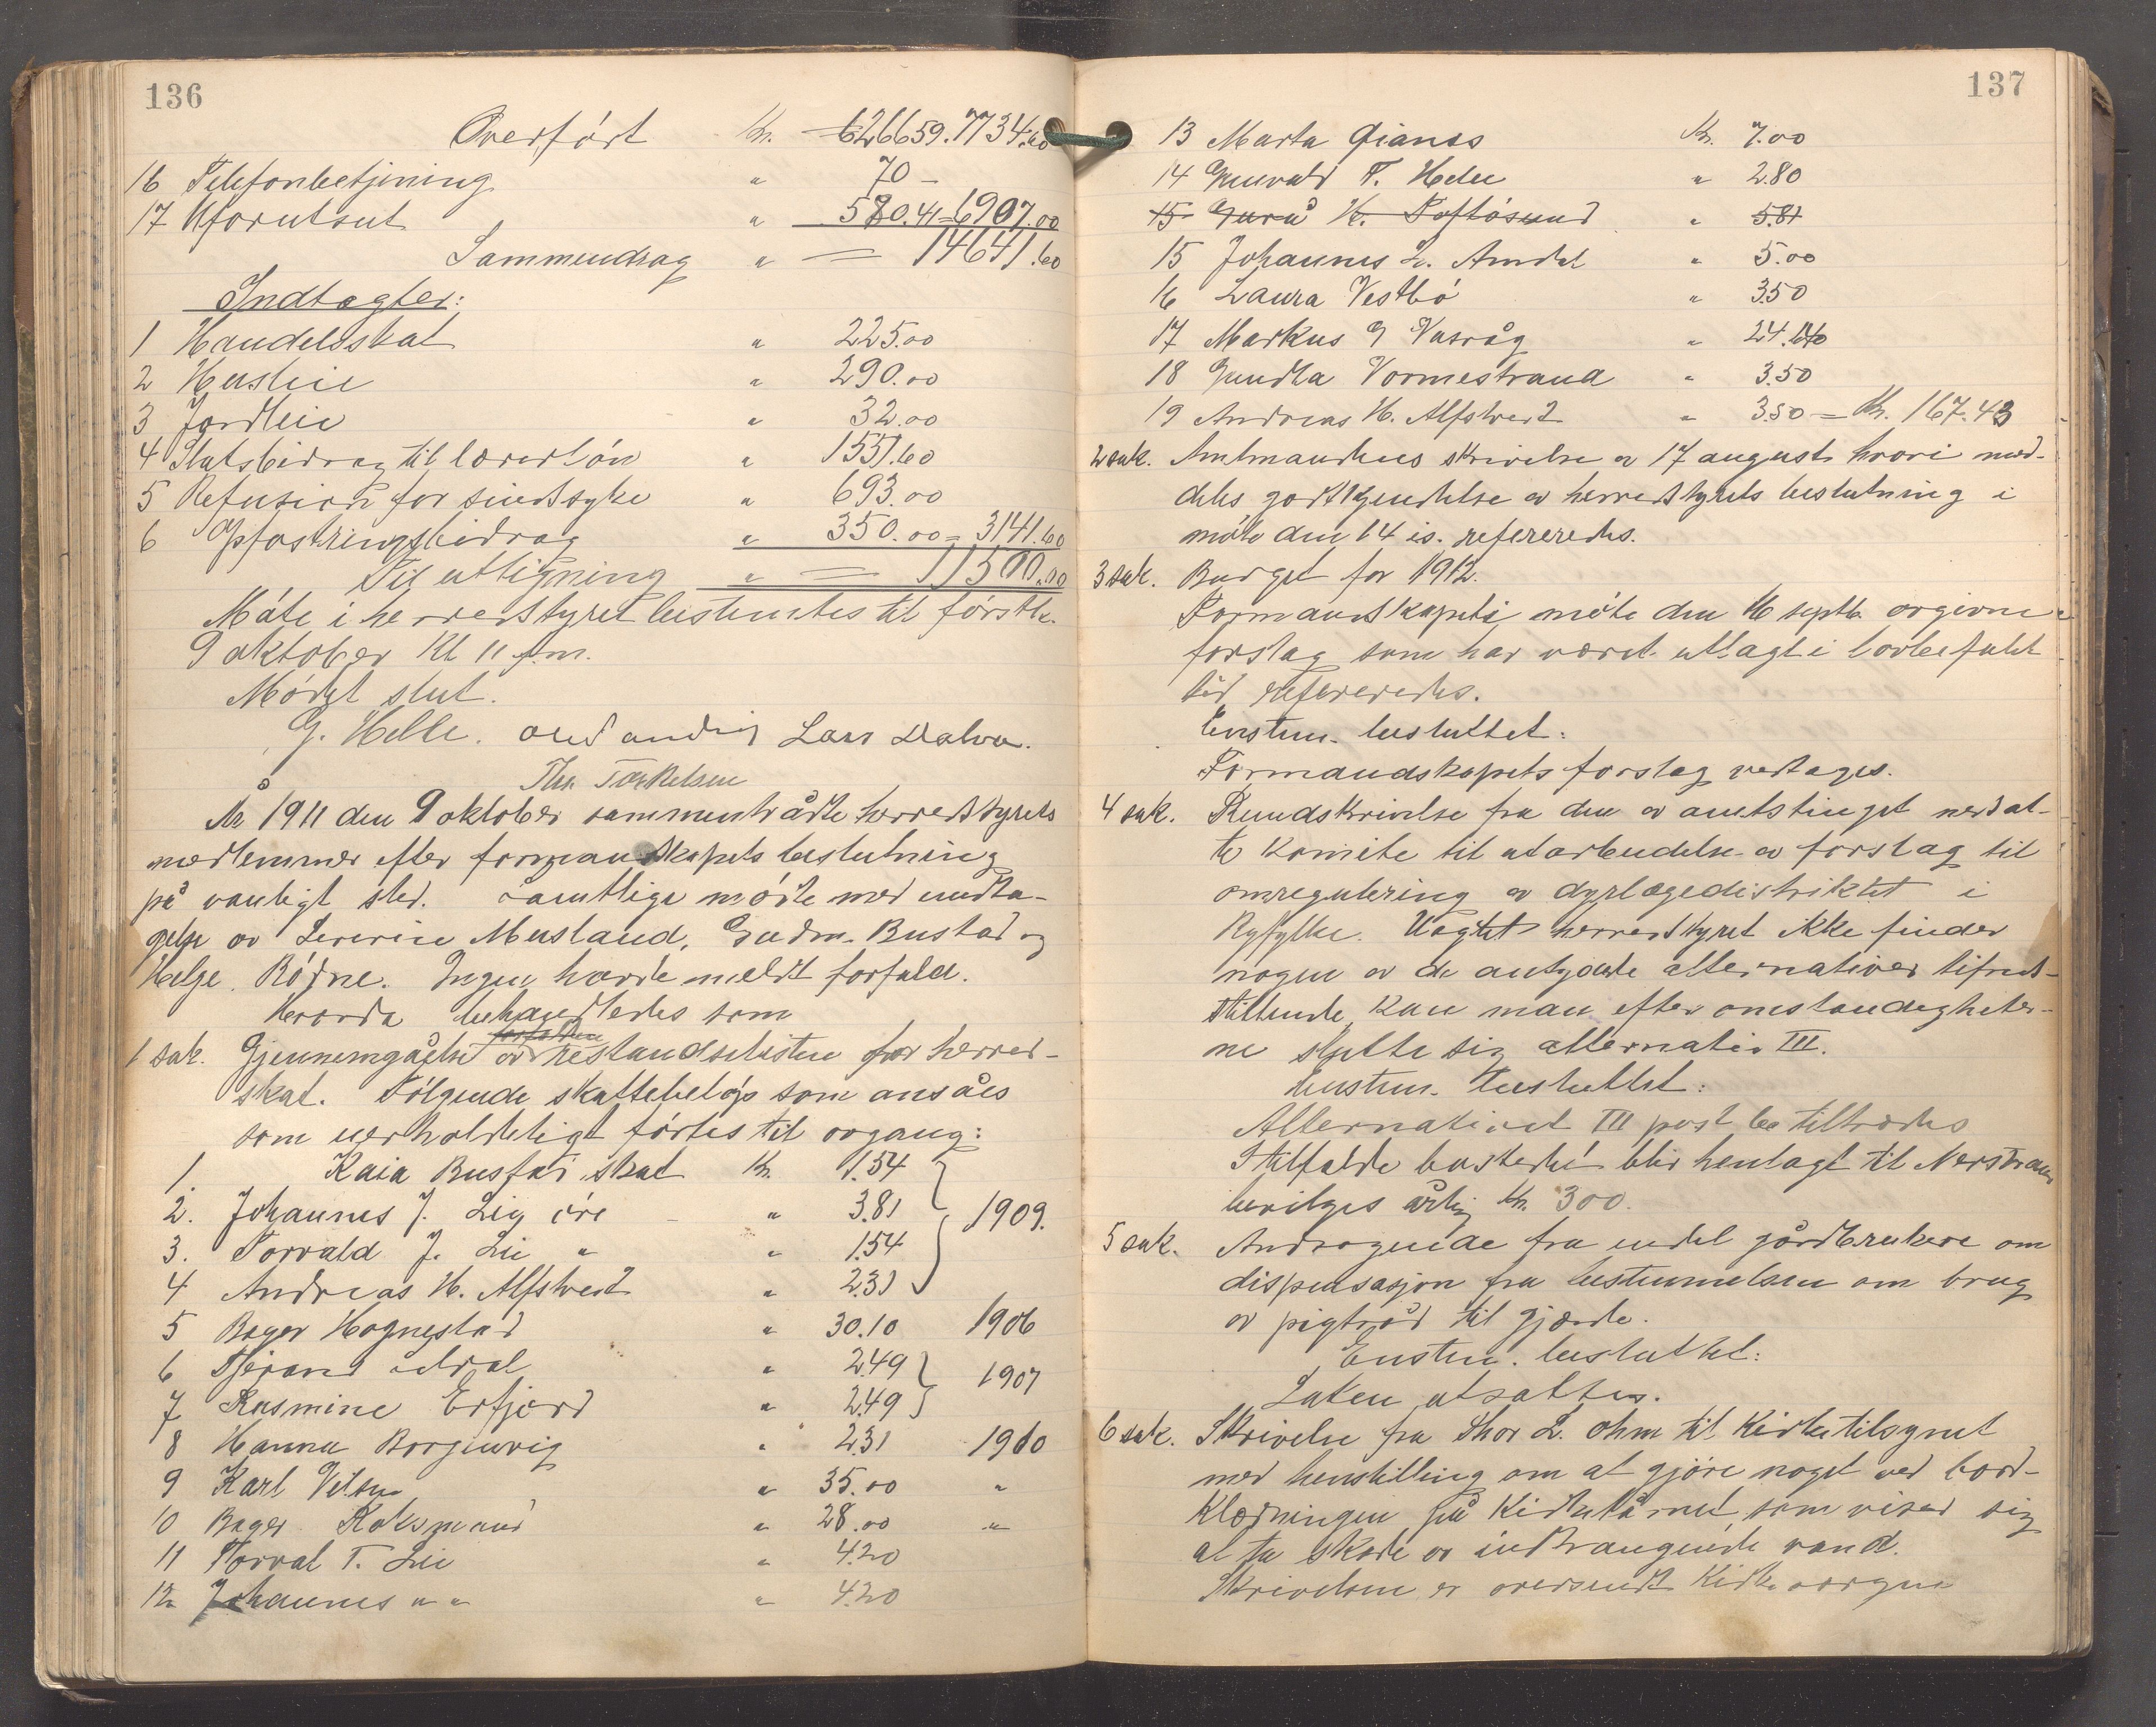 136
Overført Kr. 626659.7734.60
16 Telefonbetjening " 70 –
17 Uforutset " 580.41 = 6907.00
Sammendrag " = 14641.60
Indtægter:
1 Handelsskat " 225.00
2 Husleie " 290.00
3 Jordleie " 32.00
4 Statsbidrag til lærerløn " 1551.60
5 Refusion for sindssyke " 693.00
6 Opfostringsbidrag " 350.00 = 3141.60
Til utligning " = 11500.00
Møte i herredstyret bestemtes til førstk.
9 oktober Kl 11 f.m.
Mødet slut.
G. Helle. Lars Dalva.
Ths. Torkelsen
År 1911 den 9 oktober sammentrådte herredstyrets
medlemmer efter formandskapets beslutning
på vanligt sted. Samtlige møtte med undta-
gelse av Severin Musland, Gudm. Bustad og
Helge Bødne. Ingen havde meldt forfald.
Hvorda behandledes som
1 sak. Gjennemgåelse av restandselisten for herred-
skat. Følgende skattebeløp som ansåes
som uerholdeligt førtes til avgang:
1. Kaia Bustad skat Kr. 1.54
2. Johannes J. Lie øre " 3.81 1909.
3. Torvald J. Lie " " 1.54
4 Andreas H. Alfstveit " 2.31
5 Bager Hognestad " 30.10 1906
6 Tjerand " 2.49
7 Rasmine Erfjord " 2.49 1907
8 Hanna Borgenvig " 2.31 1910
9 Karl " 35.00 "
10 Bager " 28.00 "
11 Torval T. Lie " 4.20
12 Johannes " " " 4.20
137
13 Marta Kr. 7.00
14 T. Helle " 2.80
15 Guru K. Toftøsund " 5.81
15 Johannes L. Amdal " 5.00
16 Laura Vestbø " 3.50
17 Markus G Vasvåg " 24.40
18 Gundla Vormestrand " 3.50
19 Andreas H. Alfstveit " 3.50 = Kr. 167.43
2 sak. Amtmandens skrivelse av 17 august hvori med-
deles godkjendelse av herredstyrets beslutning i
møte den 14 is. refereredes.
3 sak. Budget for 1912.
Formandskapets i møte den 16 septb. avgivne
forslag som har været utlagt i lovbefalt
tid refereredes.
Enstem. besluttet:
Formandskapets forslag vedtages.
4 sak. Rundskrivelse fra den av amtstinget nedsat-
te komite til utarbeidelse av forslag til
omregulering av dyrlægedistriktet i
Ryfylke. Uagtet herredstyret ikke finder
nogen av de antydede alternativer tilfreds-
stillende kan man efter omstændigheter-
ne slutte sig alternativ III.
Enstem. besluttet:
Alternativet III post tiltrædes
I tilfælde bostedet blir henlagt til Nerstrand
bevilges årlig Kr. 300.
5 sak. Andragende fra endel gårdbrukere om
dispensasjon fra bestemmelsen om brug
av pigtråd til gjærde.
Enstem. besluttet:
Saken utsattes.
6 sak. Skrivelse fra Thor L. Ohm til Kirketilsynet
med henstilling om at gjøre noget ved bord-
klædningen på Kirketårnet, som viser sig
at ta skade av indtrængende vand.
Skrivelsen er oversendt Kirkeværgen